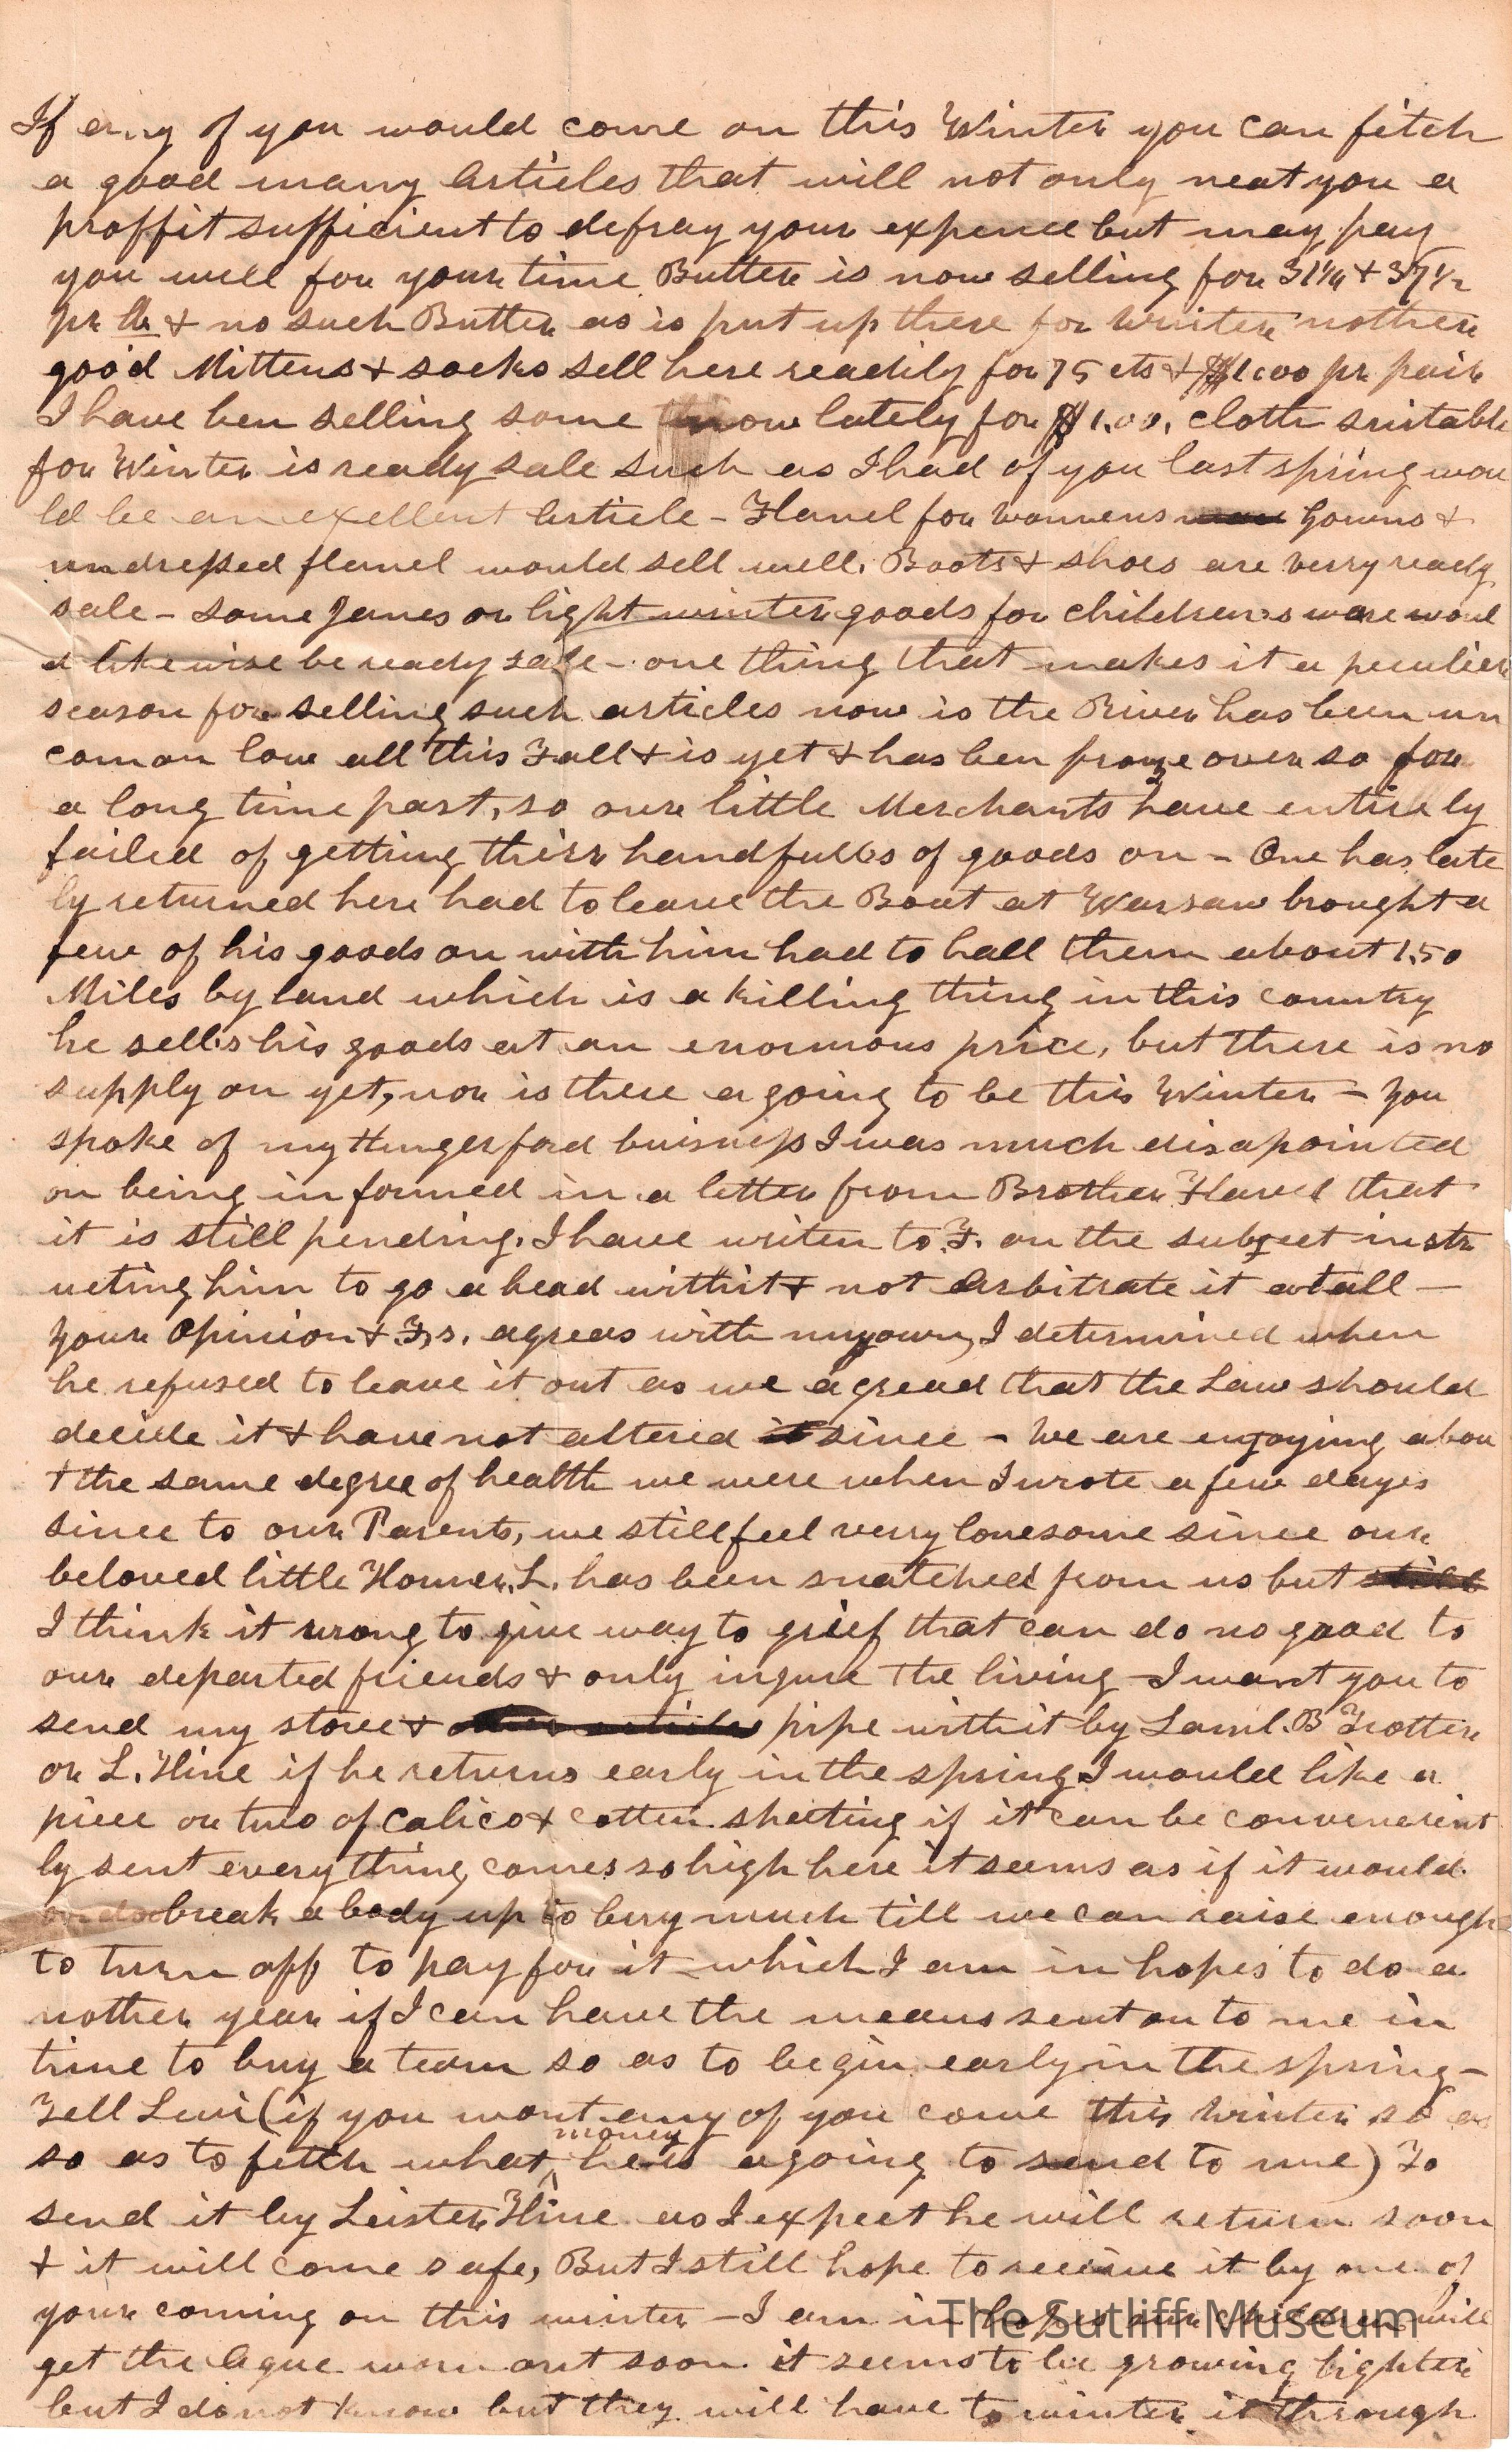 If any of you would come on this Winter you can fitch
a good many articles that will not only neat you a
proffit sufficient to defray your expence but may pay
you well for your time Butter is now selling for 31¼ & 37½
pr lb & no such Butter as is put up there for winter nother
good Mittens & socks sell here readily for 75 cts & $1.00 pr pair
I have ben selling some now lately for $1.00, cloth suitable
for Winter is ready sale such as I had of you last spring wou
ld be an exellent article - Flanel for womens gowns &
undressed flanel would sell well, Boots & shoes are very ready
sale - some Janes or light winter goods for childrens ware woul
d likewise be ready sale - one thing that makes it a peculier
season for selling such articles now is the River has been un
comon low all this Fall & is yet & has ben froze over so for
a long time past, so our little Merchants have entirely
failed of getting their handfulls of goods on - One has late
ly returned here had to leave the Boat at Warsaw brought a
few of his goods on with him had to hall them about 150
Miles by land which is a killing thing in this country
he sells his goods at an enormous price, but there is no
supply on yet, nor is there agoing to be this Winter - you
spoke of my Hungerford buisness I was much disapointed
on being informed in a letter from Brother Flavel that
it is still pending. I have writen to F. on the subject instr
ucting him to go ahead with it & not Arbitrate it atall -
your Opinion & F,s. agreas with my own, I determined when
he refused to leave it out as we agread that the Law should
decide it & have not altered it since - We are enjoying abou
t the same degree of health we were when I wrote a few days
since to our Parents, we still feel verry lonesome since our
beloved little Homer. L. has been snatched from us but still
I think it wrong to give way to grief that can do no good to
our departed friends & only injure the living - I want you to
send my stove & other articles pipe with it by Saml. B Trotter
or L. Hine if he returns early in the spring I would like a
piece or two of calico & cotten sheeting if it can be convenerint
ly sent every thing comes so high here it seems as if it would
break a body up to bery much till we can raise enough
to turn off to pay for it which I am in hopes to do a
nother year if I can have the means sent on to me in
time to buy a team so as to begin early in the spring -
Tell Levi (if you wont any of you come this winter so as
so as to fetch what money he is agoing to send to me) To
send it by Leister Hine as I expect he will return soon
& it will come safe, But I still hope to receive it by one of
your coming on this winter - I am in hopes our children will
get the Ague worn out soon it seems to be growing lighter
but I do not know but they will have to winter it through
The Sutliff Museum